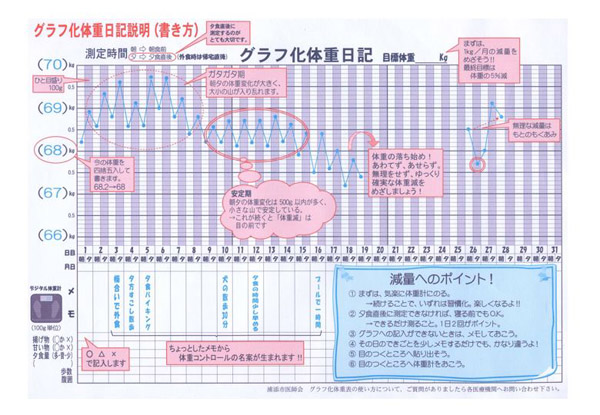 グラフ化体重日記説明(書き方)
夕食直後に
測定するのが
とても大切です。
測定時間
朝 → 朝食前
夕 → 夕食直後
(外食時は帰宅直後)
グラフ化体重日記
目標体重
Kg
まずは、
1kg/月の減量を
めざそう!!
最終目標は
体重の5%減
(70)kg
ひと目盛り
100g
0.5
ガタガタ期
朝夕の体重変化が大きく、
大小の山が入り乱れます。
(69)kg
0.5
無理な減量は
もとのもくあみ
(68)kg
体重の落ち始め!
あわてず、あせらず。
無理をせず、ゆっくり
確実な体重減を
めざしましょう!
今の体重を
四捨五入して
書きます。
68.2→68
0.5
(67)kg
安定期
朝夕の体重変化は500g以内が多く、
小さな山で安定している。
→これが続くと「体重減」は
目の前です
0.5
(66)kg
日 1 2 3 4 5 6 7 8 9 10 11 12 13 14 15 16 17 18 19 20 21 22 23 24 25 26 27 28 29 30 31 日
曜日
朝 夕 朝 夕 朝 夕 朝 夕 朝 夕 朝 夕 朝 夕 朝 夕 朝 夕 朝 夕 朝 夕 朝 夕 朝 夕 朝 夕 朝 夕 朝 夕 朝 夕 朝 夕 朝 夕 朝 夕 朝 夕 朝 夕 朝 夕 朝 夕 朝 夕 朝 夕 朝 夕 朝 夕 朝 夕 朝 夕 朝 夕
デジタル体重計
(100g単位)
メモ
接合いで外食
夕方すこし散歩
夕食バイキング
犬の散歩30分
夕食の時間少し早める
プールで一時間
減量へのポイント!
① まずは、気楽に体重計にのる。
→続けることで、いずれは習慣化。楽しくなるよ!!
② 夕食直後に測定できなければ、寝る前でもOK。
→できるだけ測ること。1日2回がポイント。
③ グラフへの記入ができないときは、メモしておこう。
④ その日のできごとを少しメモするだけでも、かなり違うよ!
⑤ 目のつくところへ貼り出そう。
⑥ 目のつくところへ体重計をおこう。
揚げ物 (○か×)
甘い物 (○か×)
夕食量 (多・普・少)
○ △ ×
で記入します
ちょっとしたメモから
体重コントロールの名案が生まれます!!
歩数
腹囲
浦添市医師会 グラフ化体重表の使い方について、ご質問がありましたら各医療機関へお問い合わせ下さい。